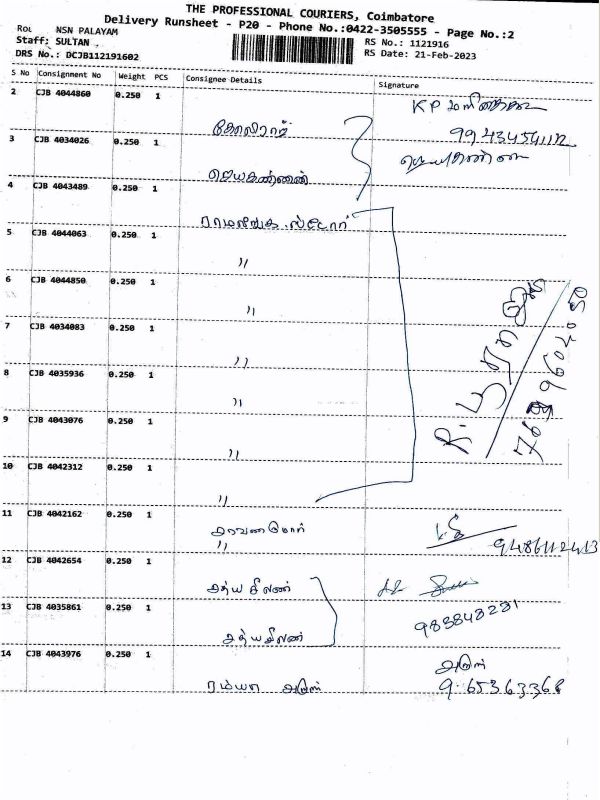 THE PROFESSIONAL COURIERS, Coimbatore
Delivery Runsheet - P20 - Phone No.:0422-3505555 - Page No.:2
RoL NSN PALAYAM
Staff: SULTAN
RS No.: 1121916
DRS No.: DCJB112191602
RS Date: 21-Feb-2023
S No Consignment No Weight PCS Consignee Details Signature
2 CJB 4044860 0.250 1
KP
9943454112
3 CJB 4034026 0.250 1
ஜெயகண்ணன்
4 CJB 4043489 0.250 1
ராமலிங்க ஸ்டோர்
5 CJB 4044063 0.250 1
"
6 CJB 4044850 0.250 1
"
7 CJB 4034083 0.250 1
"
8 CJB 4035936 0.250 1
"
9 CJB 4043076 0.250 1
"
10 CJB 4042312 0.250 1
"
11 CJB 4042162 0.250 1
"
9486112413
12 CJB 4042654 0.250 1
சத்யசீலன்
13 CJB 4035861 0.250 1
983848231
சத்யசீலன்
14 CJB 4043976 0.250 1
அருள்
ரம்யா அருள் 9.65363368